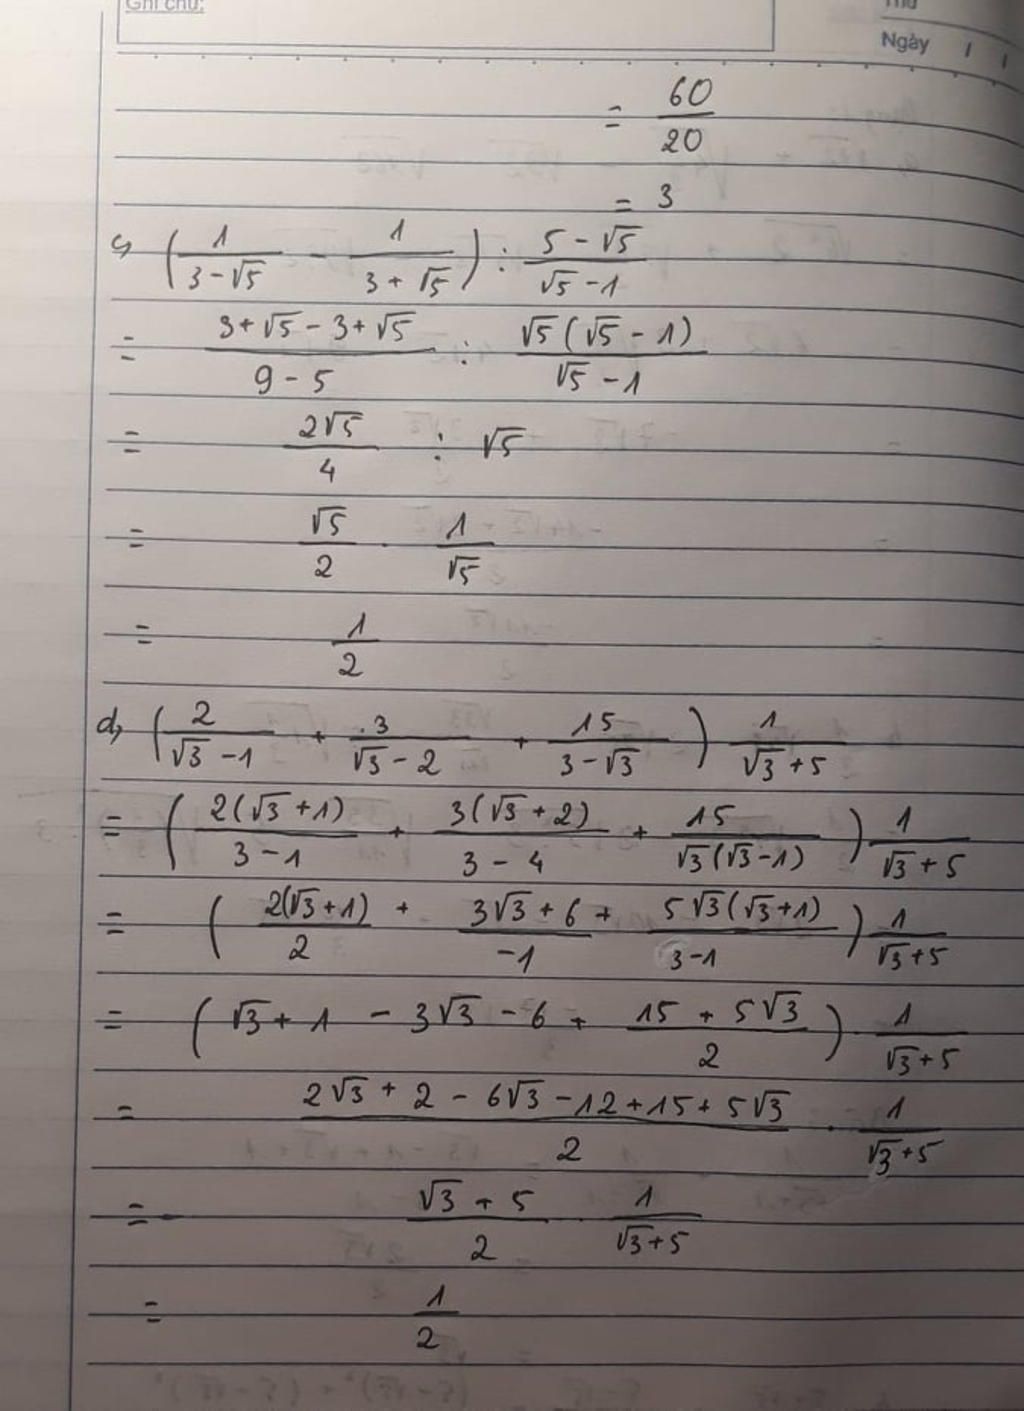 Ghi chú:
Thứ
Ngày / /
= 60/20
= 3
c, (1/(3-√5) - 1/(3+√5)) : (5-√5)/(√5-1)
= (3+√5-3+√5)/(9-5) : (√5(√5-1))/(√5-1)
= 2√5/4 : √5
= √5/2 . 1/√5
= 1/2
d, (2/(√3-1) + 3/(√3-2) + 15/(3-√3)) 1/(√3+5)
= (2(√3+1)/(3-1) + 3(√3+2)/(3-4) + 15/(√3(√3-1))) 1/(√3+5)
= (2(√3+1)/2 + (3√3+6)/-1 + 5√3(√3+1)/(3-1)) 1/(√3+5)
= (√3+1 - 3√3 - 6 + (15+5√3)/2) . 1/(√3+5)
= (2√3+2-6√3-12+15+5√3)/2 . 1/(√3+5)
= (√3+5)/2 . 1/(√3+5)
= 1/2